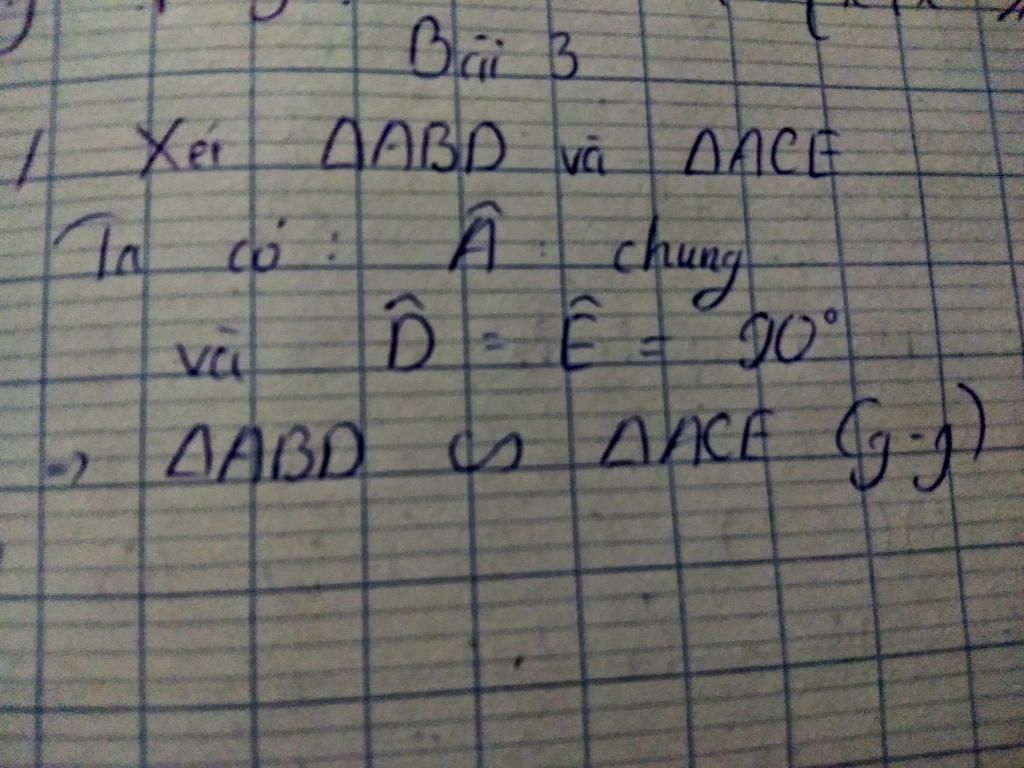 Bài 3
/ Xét ΔABD và ΔACE
Ta có: Â chung
và D̂ = Ê = 90°
=> ΔABD ∽ ΔACE (g-g)